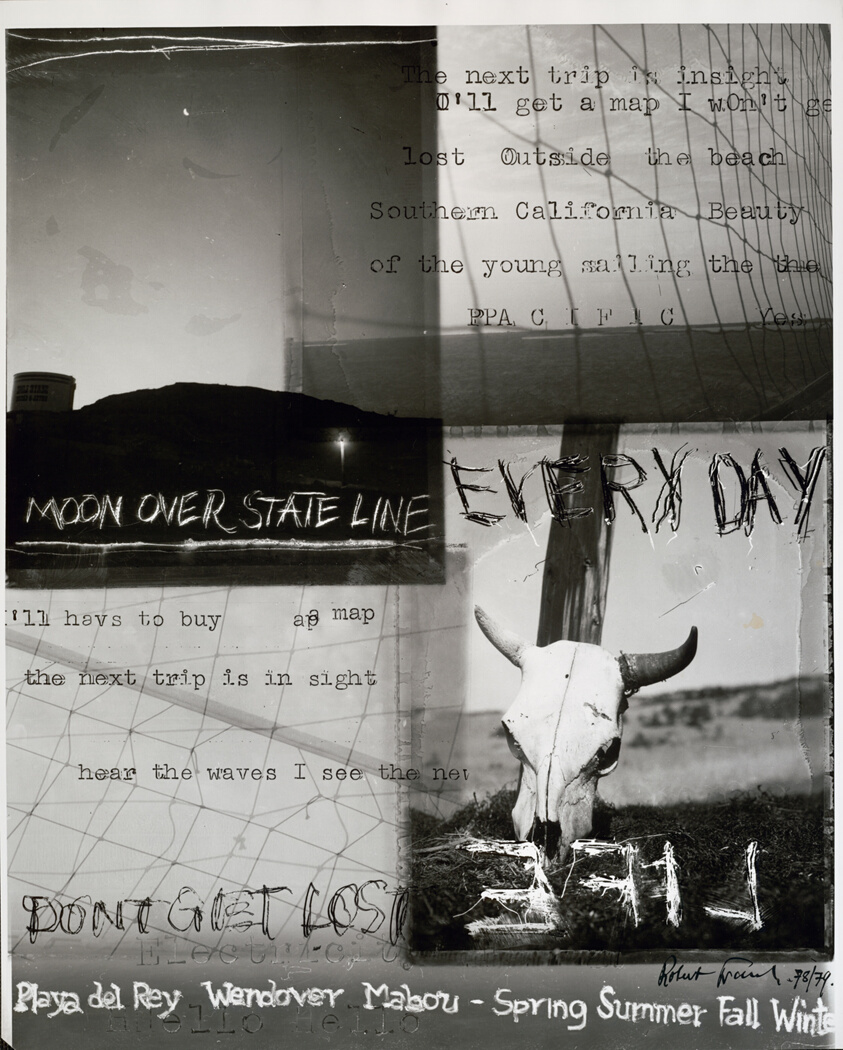 The next trip is insight
I'll get a map I wOn't ge
lost Outside the beach
Southern California Beauty
of the young salling the the
PPA C I F I C Yes
MOON OVER STATE LINE
EVERY DAY
I'll havs to buy a map
the next trip is in sight
hear the waves I see the new
LIFE
DONT GET LOST
Electricity
Hello Hello
Robert Frank 78/79.
Playa del Rey Wendover Mabou - Spring Summer Fall Winte